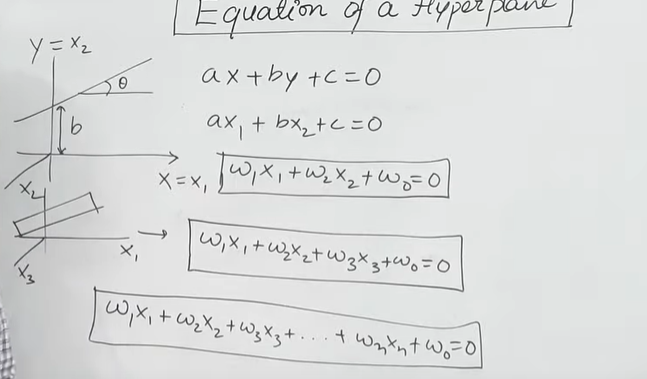 Equation of a Hyperplane
Y = x₂
θ
ax + by + c = 0
b
ax₁ + bx₂ + c = 0
X = x₁
ω₁x₁ + ω₂x₂ + ω₀ = 0
x₂
x₁
x₃
ω₁x₁ + ω₂x₂ + ω₃x₃ + ω₀ = 0
ω₁x₁ + ω₂x₂ + ω₃x₃ + ... + ωₙxₙ + ω₀ = 0